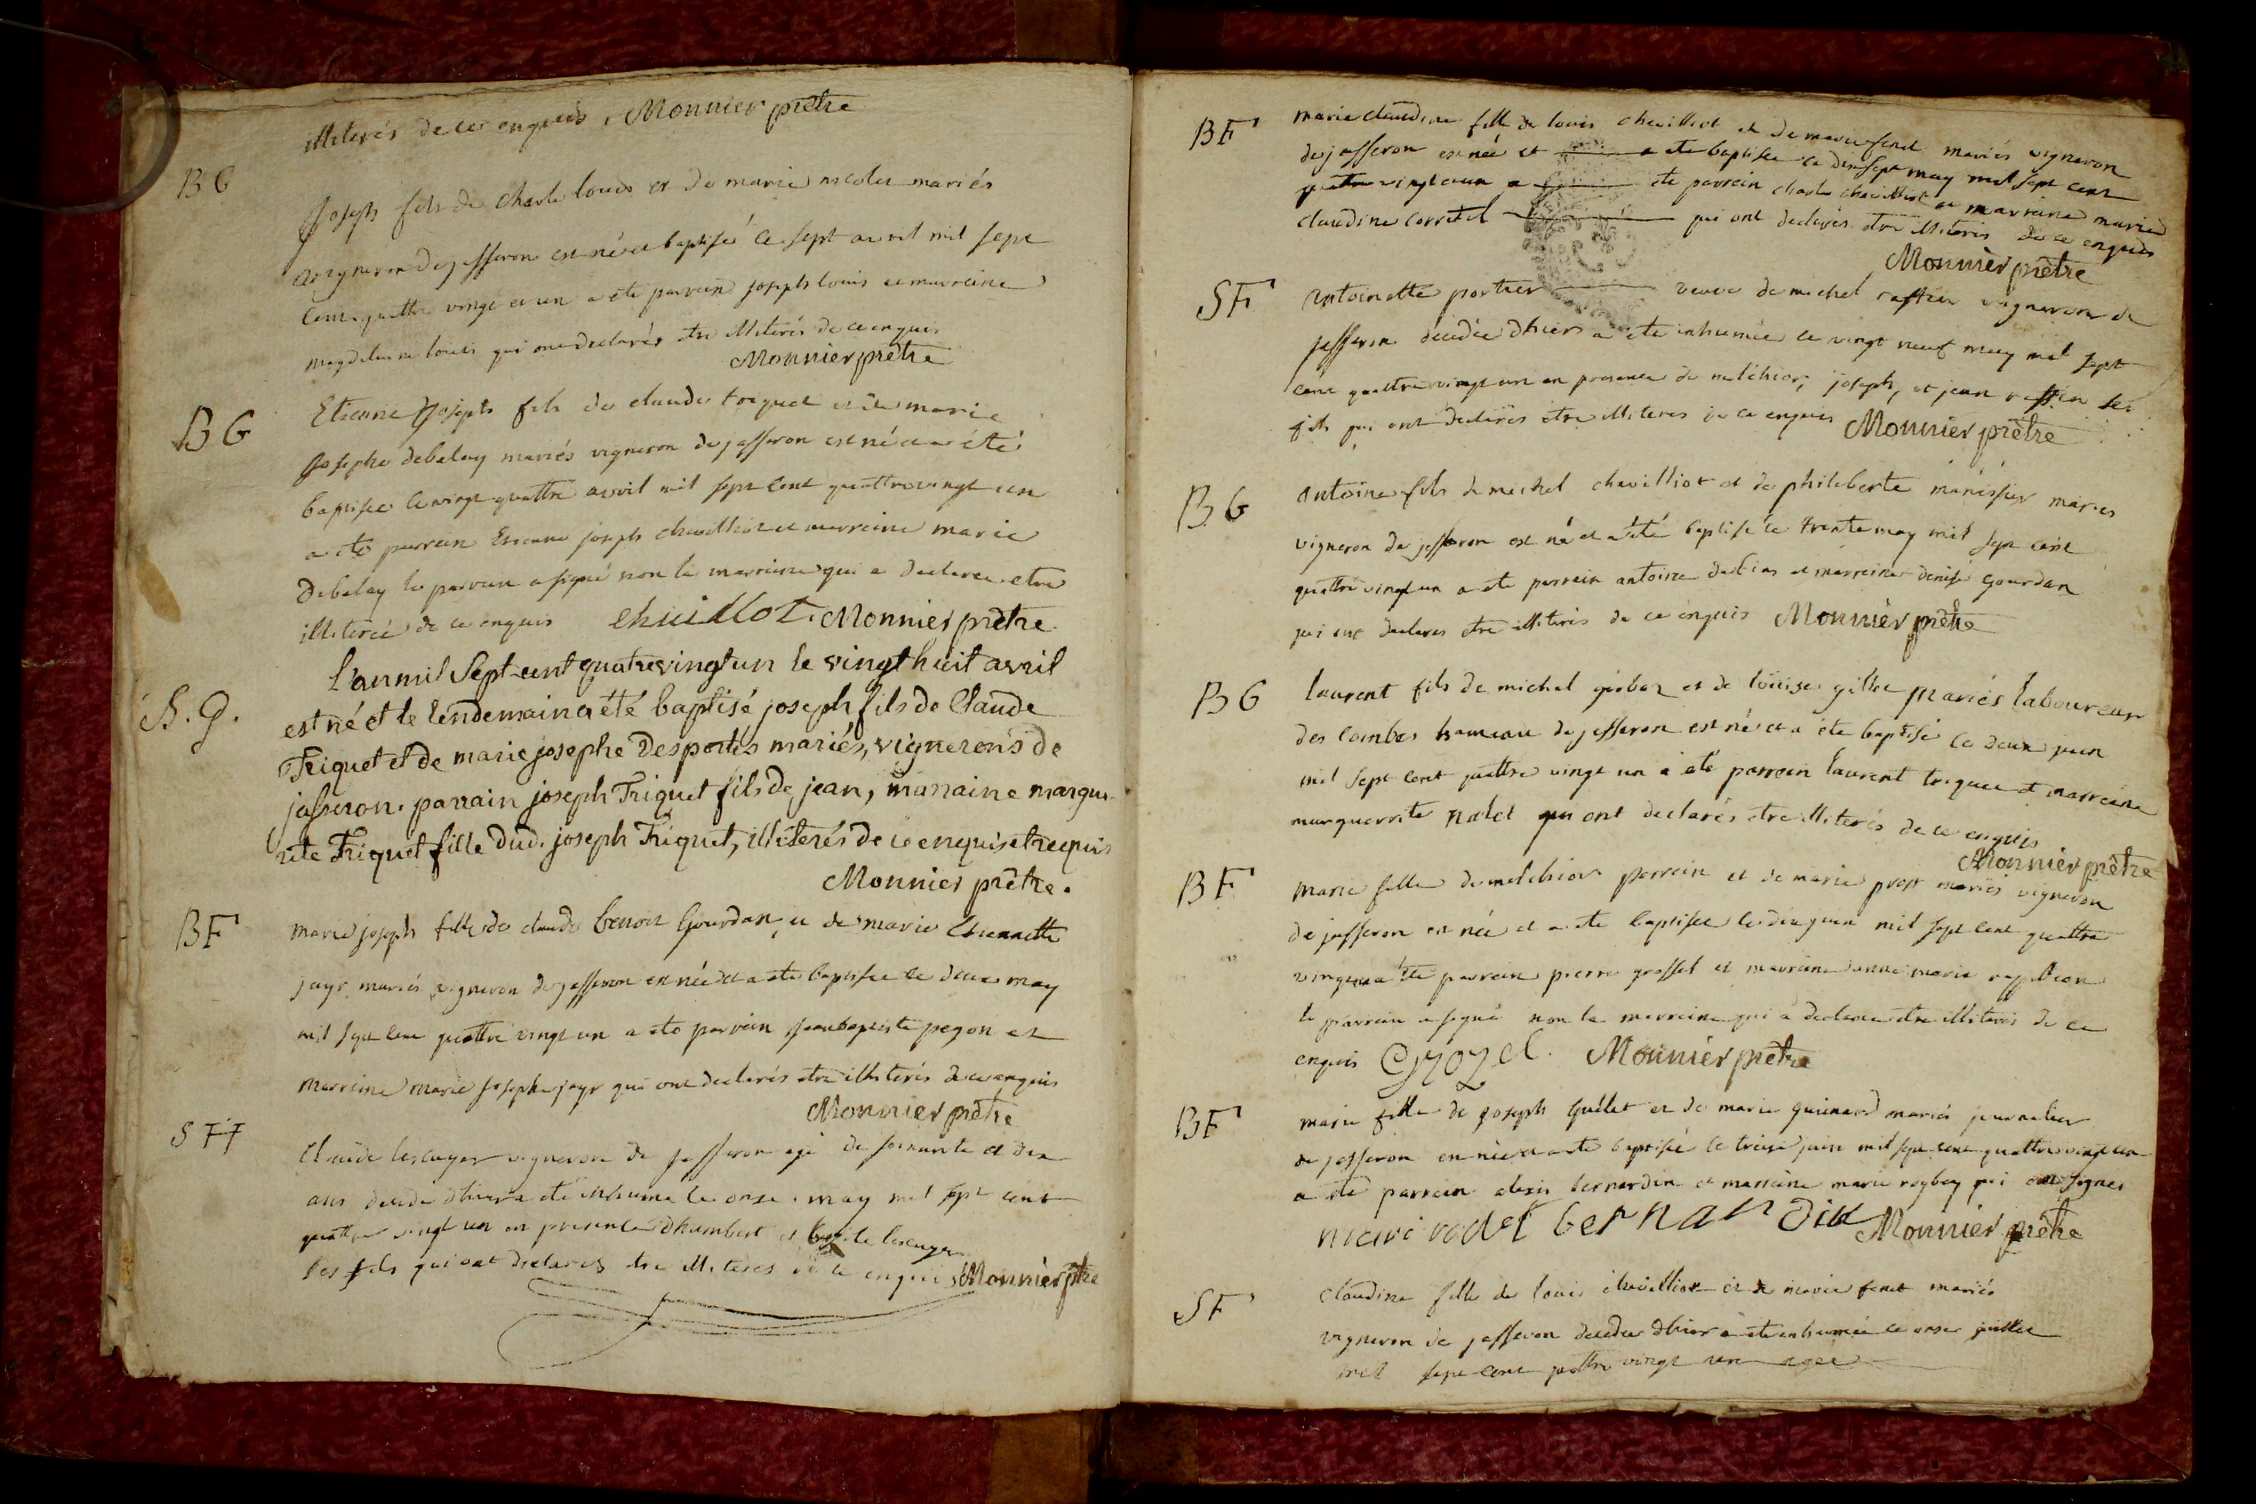 illiterés de ce enquis. Monnier prêtre
BG
joseph fils de Charle louis et de marie nicolet mariés
vigneron de jasseron est né et baptisé ce sept avril mil sept
cent quattre vingt et un a ete parrein joseph louis et marreine
magdeleine louis qui ont declarés etre illiterés de ce enquis
Monnier prêtre
BG
Etienne joseph fils de claude triquet et de marie
josephe debelay mariés vigneron de jasseron est né et a été
baptisé ce vingt quattre avril mil sept cent quattre vingt un
a ete parrein Etienne joseph chevilliot et marreine marie
Debelay le parrein a signé non la marreine qui a declaree etre
illiterée de ce enquis chuillot. Monnier prêtre
B.G.
L'an mil sept cent quatrevingt un le vingt huit avril
est né et le lendemain a été baptisé joseph fils de Claude
Triquet et de marie josephe Desportes mariés, vignerons de
jasseron. parrain joseph Triquet fils de jean, marraine margue-
rite Triquet fille dud. joseph Triquet, illiterés de ce enquis et requis
Monnier prêtre.
BF
marie joseph fille de claude benoit Gourdan et de marie
jayr mariés vigneron de jasseron est née et a ete baptisée ce deux may
mil sept cent quattre vingt un a ete parrein jean baptiste pegon et
marreine marie josephe jayr qui ont declarés etre illiterés de ce enquis
Monnier prêtre
S
Claude lescuyer vigneron de jasseron agé de soixante et dix
ans decedé dhier a été inhumé le onze may mil sept cent
quattre vingt un en presence dhumbert et lescuyer
ses fils qui ont declarés etre illiteres de ce enquis Monnier ptre
BF
marie claudine fille de louis chevilliot et de marie feret mariés vigneron
de jasseron est née et a ete baptisée ce dix sept may mil sept cent
quattre vingt et un a ete parrein charle chevilliot et marreine marie
claudine corretel qui ont declarés etre illiterés de ce enquis
Monnier prêtre
SF
antoinette portier veuve de michel vigneron de
jasseron decedée dhier a ete inhumée ce vingt neuf may mil sept
cent quattre vingt un en presence de melchior, joseph, et jean ses
fils qui ont declarés etre illiteres de ce enquis Monnier prêtre
BG
antoine fils de michel chevilliot et de philiberte manissier mariés
vigneron de jasseron est né et a été baptisé ce trente may mil sept cent
quattre vingt un a ete parrein antoine et marreine denise Gourdan
qui ont declarés etre illiterés de ce enquis Monnier prêtre
BG
laurent fils de michel et de louise gillet mariés laboureur
des combes hameau de jasseron est né et a ete baptisé ce deux juin
mil sept cent quattre vingt un a été parrein laurent triquet et marreine
marguerite nalet qui ont declarés etre illiterés de ce enquis
Monnier prêtre
BF
marie fille de melchior perrein et de marie prost mariés vigneron
de jasseron est née et a ete baptisée le dix juin mil sept cent quattre
vingt un a été parrein pierre grosset et marreine anne marie
le parrein a signé non la marreine qui a declaree etre illiterés de ce
enquis Monnier prêtre
BF
marie fille de joseph Guillet et de marie guinard mariés journalier
de jasseron est née et a ete baptisée le treize juin mil sept cent quattre vingt un
a été parrein alexis bernardin et marreine marie qui ont signés
bernardin Monnier prêtre
SF
Claudine fille de louis chevilliot et de marie feret mariés
vigneron de jasseron decedée dhier a ete inhumée ce onze juillet
mil sept cent quattre vingt un agée